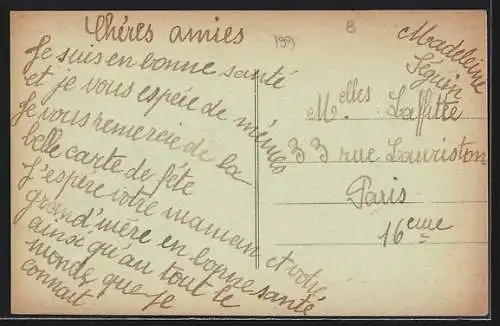 Chères amies
Je suis en bonne santé
et je vous espère de mêmes
Je vous remercie di la
belle carte de fête
J'espère votre maman et votre
grand'mère en bonne santé
ainsi qu'au tout le
monde que je
connait
199
8
Madeleine
Séguin
Melles Laffitte
33 rue Lauriston
Paris
16eme